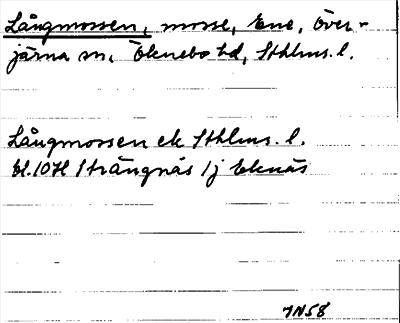 Långmossen, mosse, Ene, Över-
järna sn, Öknebo hd, Sthlms. l.
Långmossen ek Sthlms. l.
bl. 10H Strängnäs 1j Eknäs
JN58